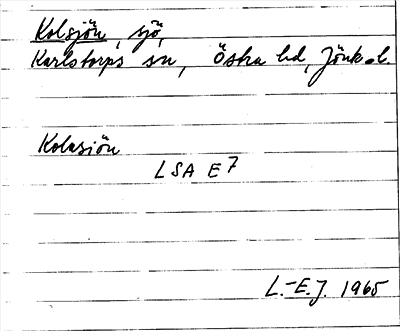 Kolsjön, sjö,
Karlstorps sn, Östra hd, Jönk.l.
Kolasiön
LSA E7
L.-E.J. 1965